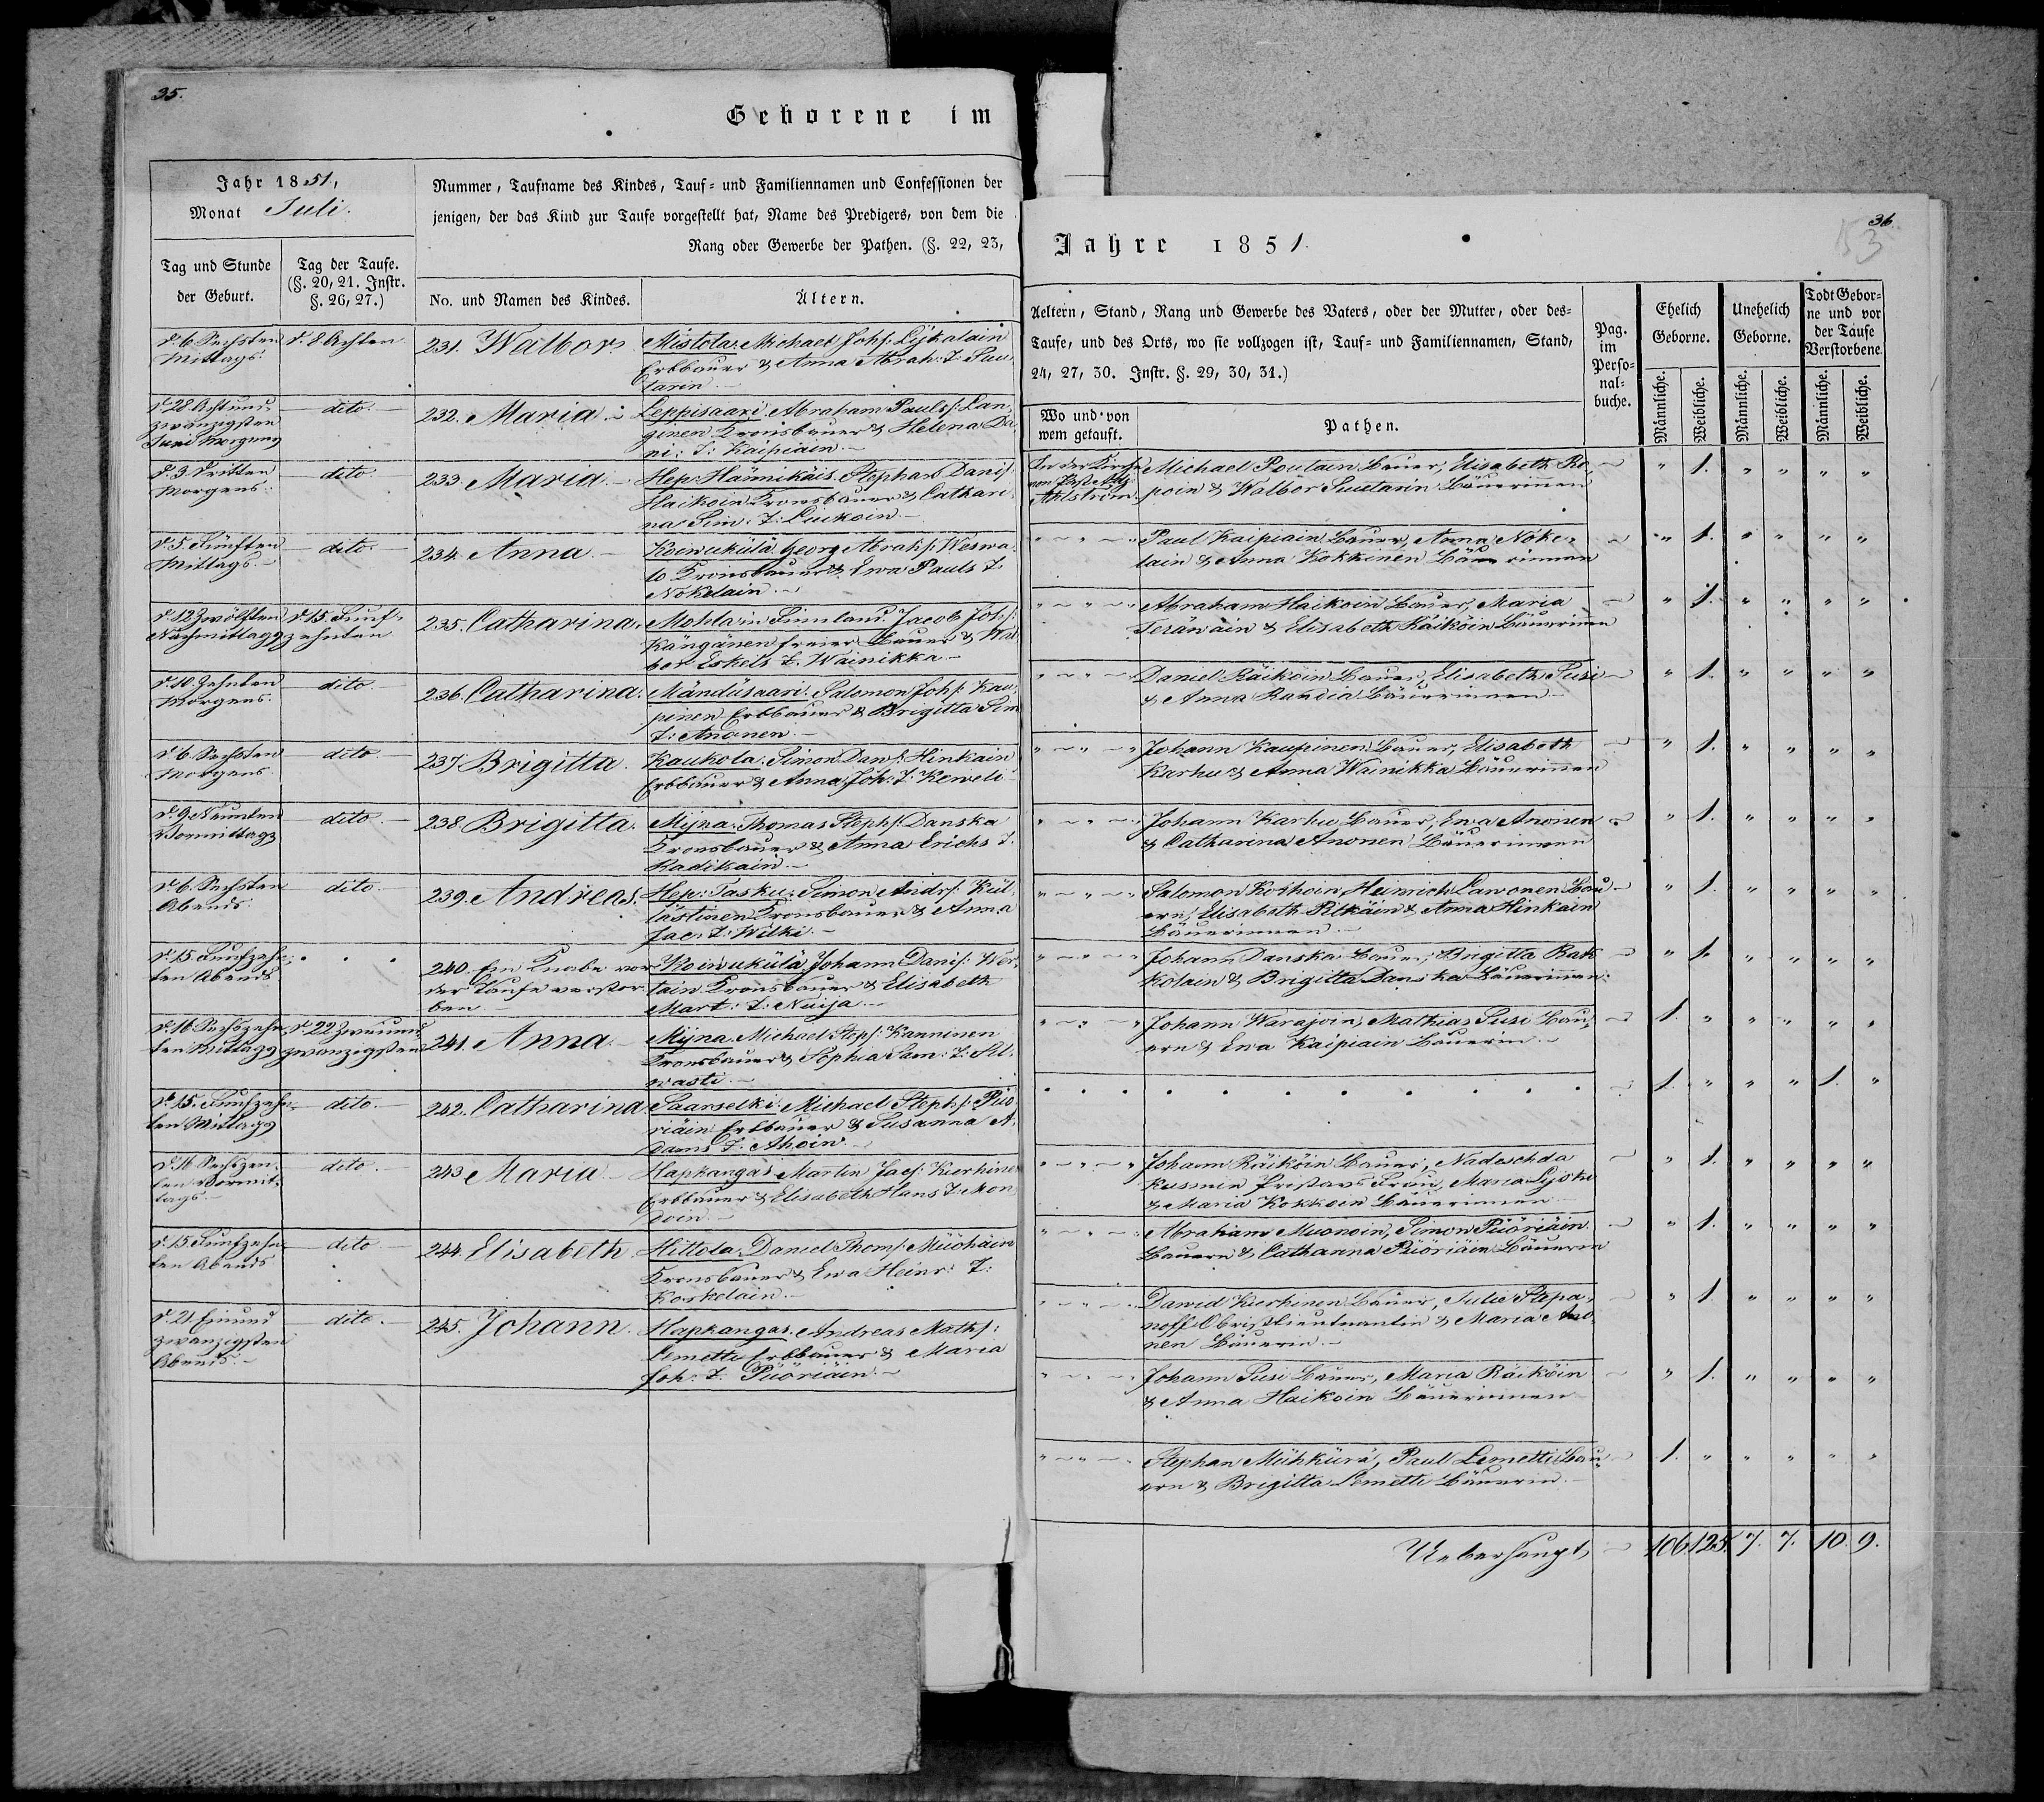 35.
Geborene im
Jahr 1851,
Monat Juli.
Nummer, Taufname des Kindes, Tauf- und Familiennamen und Confessionen der
jenigen, der das Kind zur Taufe vorgestellt hat, Name des Predigers, von dem die
Rang oder Gewerbe der Pathen. (§. 22, 23,
Tag und Stunde
der Geburt.
Tag der Taufe.
(§. 20, 21. Instr.
§. 26, 27.)
No. und Namen des Kindes.
Ältern.
d. 6. Sechsten
Mittags.
d. 8 Achten
231. Walbor.
Mistola. Michael Johs: Lykalain
Erbbauer & Anna Abrah: T. Suu-
tarin.
d. 28 Acht und
zwanzigsten
Juni Morgens
dito.
232. Maria.
Leppisaari. Abraham Pauls: Lan-
ginen Kronsbauer & Helena Da-
ni: T: Kaipiain.
d. 3. Dritten
Morgens.
dito
233. Maria.
Hep: Hännikäis. Stephan Danis:
Haikoin Kronsbauer & Cathari-
na Sim: T: Luikoin.
d. 5. Fünften
Mittags.
dito.
234. Anna.
Koiwukülä. Georg Abrah: Weswa-
lo Kronsbauer & Ewa Pauls T.
Nokelain.
d. 12 Zwölften
Nachmittags
d. 15. Funf-
zehnten
235. Catharina.
Mohla in Finnland. Jacob Joh:
Kängänen freier Bauer & Wal-
bor Eskils T. Wainikka.
d. 10. Zehnten
Morgens.
dito.
236. Catharina.
Mändüsaari. Salomon Johs: Kau-
pinen Erbbauer & Brigitta Sim
T: Anonen.
d. 6. Sechsten
Morgens
dito.
237 Brigitta.
Kaukola. Simon Dans: Hinkain
Erbbauer & Anna Joh: T. Koweli
d. 9. Neunten
Vormittags
dito.
238. Brigitta.
Mijna. Thomas Steph: Danska
Kronsbauer & Anna Erichs T.
Radikain.
d. 6. Sechsten
Abends.
dito.
239. Andreas.
Hep: Tasku. Simon Andrs: Kül-
lästinen Kronsbauer & Anna
Jac: T: Wilki.
d. 15. Funfzehn-
ten Abends
240. Ein Knabe vor
der Taufe verstor-
ben.
Koiwukülä. Johann Danis: Wer-
tain Kronsbauer & Elisabeth
Mart: T: Naija.
d. 16 Sechszehn-
ten Mittags
d. 22. Zweiund-
zwanzigsten
241. Anna.
Mijna. Michael Step: Kanninen
Kronsbauer & Sophia Sam: T:
wasti.
d. 15. Funfzehn-
ten Mittags
dito.
242. Catharina.
Saarselki. Michael Steph: Püö-
riäin Erbbauer & Susanna A-
dams T. Ahoin.
d. 16 Sechszen-
ten Vormit-
tags.
dito.
243 Maria
Hapkangas Martin Jac: Kurhinen
Erbbauer & Elisabeth Hans T. Mon-
doin
d. 15 Funfzehn-
ten Abends
dito
244. Elisabeth.
Hittola. Daniel Thoms: Müöhäin
Kronsbauer & Ewa Heinr: T:
Koskelain.
d. 21. Einund
zwanzigsten
Abends.
dito.
245. Johann.
Hapkangas. Andreas Maths:
Lemetti Erbbauer & Maria
Joh: T. Püöriäin.
36.
53
Jahre 1851.
Aeltern, Stand, Rang und Gewerbe des Vaters, oder der Mutter, oder des-
Taufe, und des Orts, wo sie vollzogen ist, Tauf- und Familiennamen, Stand,
24, 27, 30. Instr. §. 29, 30, 31.)
Wo und von
wem getauft.
Pathen.
Pag.
im
Perso-
nal-
buche.
Ehelich
Geborne.
Unehelich
Geborne.
Todt Gebor-
ne und vor
der Taufe
Verstorbene.
Männliche.
Weibliche.
Männliche.
Weibliche.
Männliche.
Weibliche.
In der Kirche
von Past: Adj:
Ahlström.
Michael Poutain Bauer, Elisabeth Ro-
poin & Walbor Suutarin Bäuerinnen
~ " 1. " " " "
" ~ " ~ " Paul Kaipiain Bauer, Anna Noke-
lain & Anna Kokkinen Bäuerinnen
~ " 1. " " " "
" ~ " ~ " Abraham Haikoin Bauer, Maria
Teränäin & Elisabeth Räiköin Bäuerinnen
~ " 1. " " " "
" ~ " ~ " Daniel Räiköin Bauer, Elisabeth Susi
& Anna Randia Bäuerinnen
~ " 1. " " " "
" ~ " ~ " Johann Kaupinen Bauer, Elisabeth
Karhu & Anna Wainikka Bäuerinnen
~ " 1. " " " "
" ~ " ~ " Johann Karhu Bauer, Ewa Anonen
& Catharina Anonen Bäuerinnen
~ " 1. " " " "
" ~ " ~ " Salomon Koskoin, Heinrich Lawonen Bau-
ern, Elisabeth Pitkäin & Anna Hinkain
Bäuerinnen.
~ " 1. " " " "
" ~ " ~ " Johann Danska Bauer, Brigitta Rak-
kolain & Brigitta Danska Bäuerinnen.
~ " 1. " " " "
" ~ " ~ " Johann Warajoin, Mathias Susi Bau-
ern & Ewa Kaipiain Bäuerin.
~ 1. " " " " "
~ 1. " " " 1. "
" ~ " ~ " Johann Räiköin Bauer, Nadeschda
Kusmin Pristavs Frau, Maria Lyski
& Maria Kokkoin Bäuerinnen
~ " 1. " " " "
" ~ " ~ " Abraham Muonoin, Simon Püöriäin
Bauern & Catharina Püöriäin Bäuerin
~ " 1. " " " "
" ~ " ~ " Dawid Kurhinen Bauer, Julie Stepa-
noff Obristlieutnantin & Maria Ano-
nen Bäuerin.
~ " 1. " " " "
" ~ " ~ " Johann Susi Bauer, Maria Räiköin
& Anna Haikoin Bäuerinnen
~ " 1. " " " "
" ~ " ~ " Stephan Mühkürä, Paul Lemetti Bau-
ern & Brigitta Lemetti Bäuerin.
~ 1. " " " " "
Ueberhaupt ~ 106. 125. 7. 7. 10. 9.